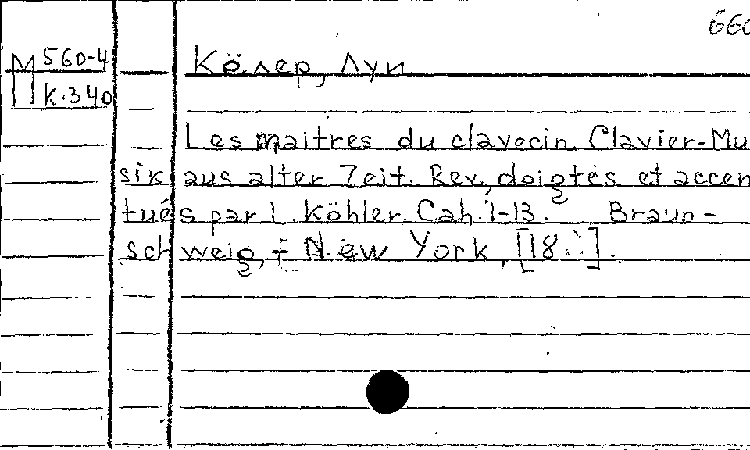 660
М 560-4
К.340
Кёлер, Луи
Les maitres du clavecin. Clavier-Mu
sik aus alter Zeit. Rev., doigtés et accen
tués par L. Köhler. Cah. 1-13. Braun-
schweig, - New York, [18..].